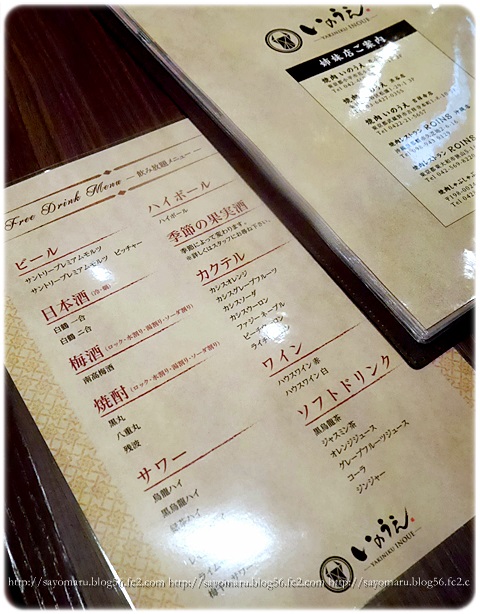 いのうえ
YAKINIKU INOUE
姉妹店ご案内
焼肉 いのうえ
焼肉 いのうえ
焼肉レストラン ROINS
焼肉レストラン ROINS
Free Drink Menu
― 飲み放題メニュー ―
ビール
サントリープレミアムモルツ
サントリープレミアムモルツ ピッチャー
日本酒(冷・燗)
白鶴 一合
白鶴 二合
梅酒(ロック・水割り・湯割り・ソーダ割り)
南高梅酒
焼酎(ロック・水割り・湯割り・ソーダ割り)
黒丸
八重丸
残波
サワー
烏龍ハイ
黒烏龍ハイ
ハイボール
ハイボール
季節の果実酒
季節によって変わります。
※詳しくはスタッフにお尋ね下さい。
カクテル
カシスオレンジ
カシスグレープフルーツ
カシスソーダ
カシスウーロン
ファジーネーブル
ワイン
ハウスワイン 赤
ハウスワイン 白
ソフトドリンク
黒烏龍茶
ジャスミン茶
オレンジジュース
グレープフルーツジュース
コーラ
ジンジャー
いのうえ
YAKINIKU INOUE
http://sayomaru.blog56.fc2.com http://sayomaru.blog56.fc2.com http://sayomaru.blog56.fc2.c